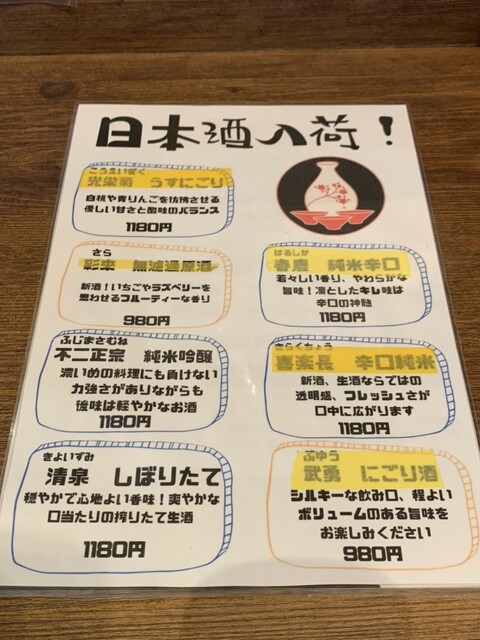 日本酒入荷！
こうえいぎく
光栄菊 うすにごり
白桃や青りんごを彷彿させる
優しい甘さと酸味のバランス
1180円
さら
彩來 無濾過原酒
新酒！いちごやラズベリーを
思わせるフルーティーな香り
980円
ふじまさむね
不二正宗 純米吟醸
濃いめの料理にも負けない
力強さがありながらも
後味は軽やかなお酒
1180円
きよいずみ
清泉 しぼりたて
穏やかで心地よい香味！爽やかな
口当たりの搾りたて生酒
1180円
はるしか
春鹿 純米辛口
若々しい香り、やわらかな
旨味！凛としたキレ味は
辛口の神髄
1180円
きらくちょう
喜楽長 辛口純米
新酒、生酒ならではの
透明感、フレッシュさが
口中に広がります
1180円
ぶゆう
武勇 にごり酒
シルキーな飲み口、程よい
ボリュームのある旨味を
お楽しみください
980円